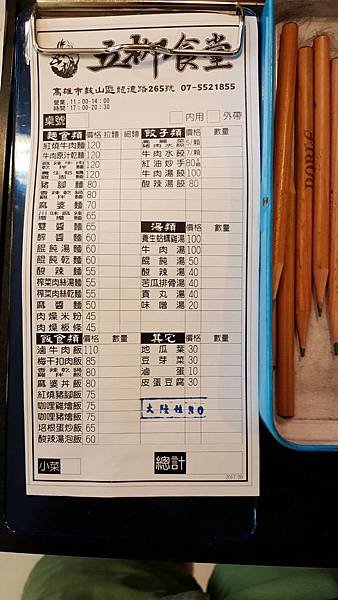 五柳食堂
高雄市鼓山區龍德路265號 07-5521855
營業:11:00-14:00
時間:17:00-20:30
桌號 內用 外帶
麵食類 價格 拉麵 細麵
紅燒牛肉麵 120
牛肉原汁乾麵 120
牛肉乾麵 120
豬腳麵 80
麻婆麵 70
雙醬麵 65
醡醬麵 60
餛飩湯麵 60
餛飩乾麵 60
酸辣麵 55
榨菜肉絲湯麵 55
榨菜肉絲乾麵 55
麻醬麵 50
肉燥米粉 45
肉燥板條 45
飯食類 價格 數量
滷牛肉飯 110
梅干扣肉飯 85
麻婆丼飯 80
紅燒豬腳飯 75
咖哩雞燴飯 75
咖哩豬燴飯 75
培根蛋炒飯 65
酸辣湯泡飯 60
小菜
餃子類 價格 數量
牛肉水餃 7/顆
紅油炒手 80
牛肉湯餃 100
酸辣湯餃 80
湯類 價格 數量
養生蛤蠣雞湯 100
牛肉湯 100
餛飩湯 50
酸辣湯 40
苦瓜排骨湯 40
貢丸湯 40
味噌湯 20
其它 價格 數量
地瓜葉 30
豆芽菜 30
滷蛋 10
皮蛋豆腐 30
大陸妹 30
總計